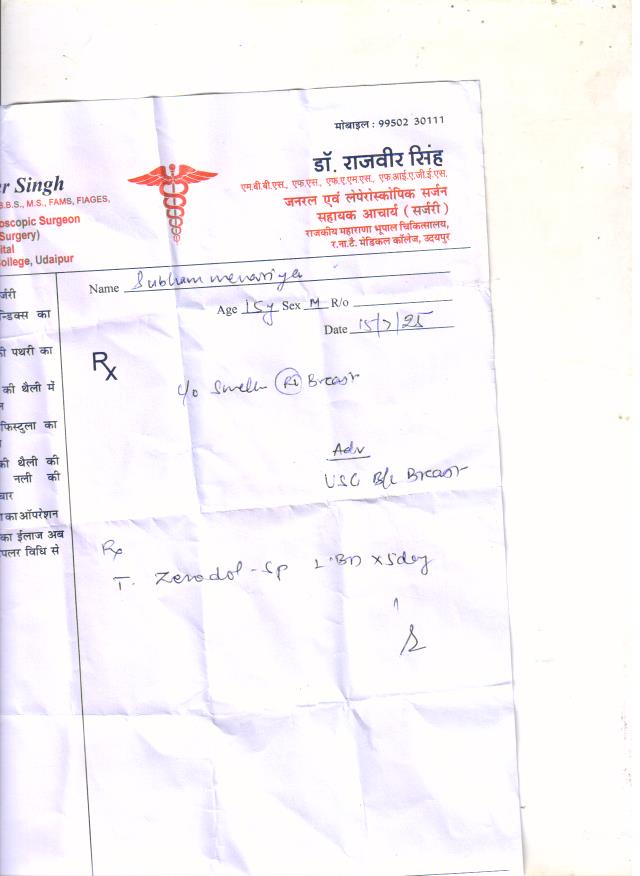 मोबाइल : 99502 30111
er Singh
B.B.S., M.S., FAMS, FIAGES,
oscopic Surgeon
Surgery)
ital
ollege, Udaipur
डॉ. राजवीर सिंह
एम.बी.बी.एस., एफ.एस., एफ.ए.एम.एस., एफ.आई.ए.जी.ई.एस.
जनरल एवं लेपेरोस्कोपिक सर्जन
सहायक आचार्य (सर्जरी)
राजकीय महाराणा भूपाल चिकित्सालय,
र.ना.टै. मेडिकल कॉलेज, उदयपुर
र्जरी
न्डिक्स का
ी पथरी का
की थैली में
फिस्टुला का
की थैली की
नली की
चार
ा का ऑपरेशन
का ईलाज अब
पलर विधि से
Name Subham menariya
Age 15y Sex M R/o
Date 15/7/25
Rx
c/o Swell Rt Breast
Adv
USG B/L Breast
Rx
T. Zerodol-Sp 1-BD x 5day